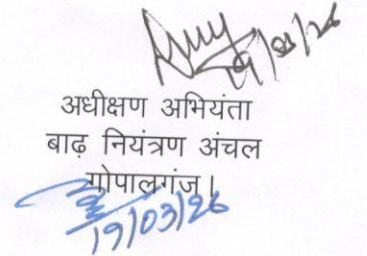 19/03/26
अधीक्षण अभियंता
बाढ़ नियंत्रण अंचल
गोपालगंज।
19/03/26